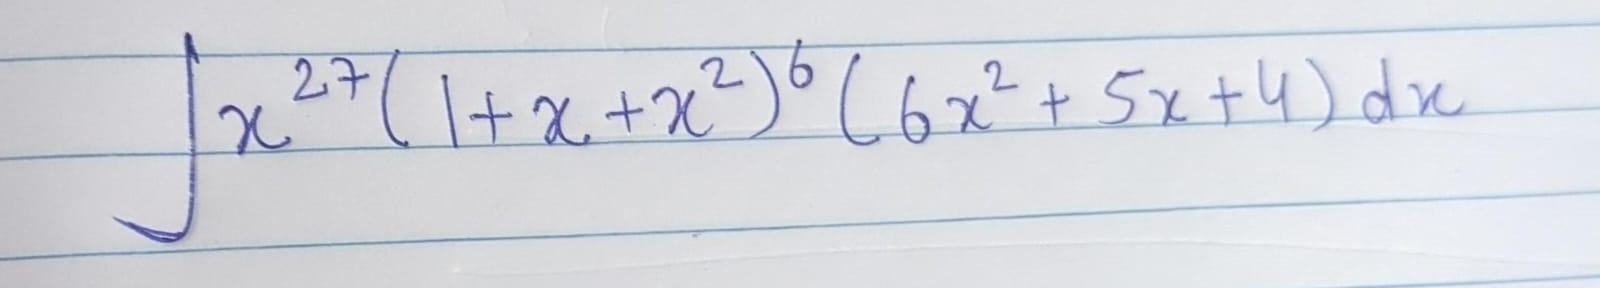 ∫x²⁷(1+x+x²)⁶(6x²+5x+4)dx